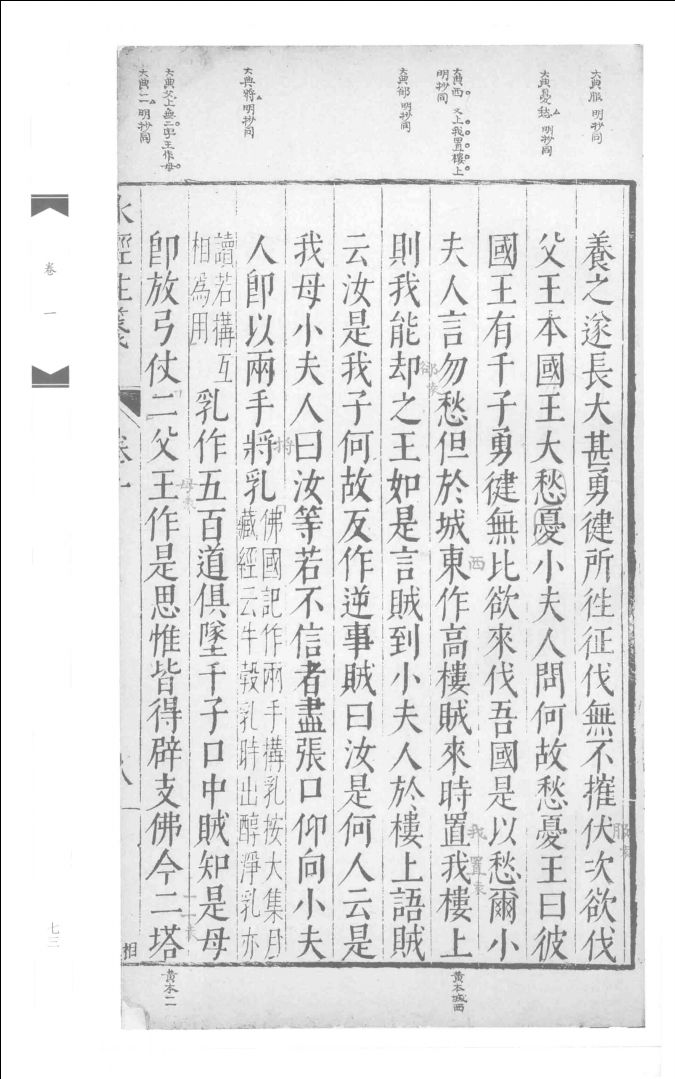 大典服 明抄同
大典憂愁 明抄同
大典西 又上我置樓上
明抄同
大典卻 明抄同
大典將 明抄同
大典父上無二字王作母
大典二 明抄同
養之遂長大甚勇健所往征伐無不摧伏次欲伐
父王本國王大愁憂小夫人問何故愁憂王曰彼
國王有千子勇健無比欲來伐吾國是以愁爾小
夫人言勿愁但於城東作高樓賊來時置我樓上
則我能却之王如是言賊到小夫人於樓上語賊
云汝是我子何故反作逆事賊曰汝是何人云是
我母小夫人曰汝等若不信者盡張口仰向小夫
人卽以兩手將乳
佛國記作兩手構乳按大集月
藏經云牛𣫍乳時出醇淨乳亦
讀若構互
相為用
乳作五百道俱墜千子口中賊知是母
卽放弓仗二父王作是思惟皆得辟支佛今二塔
服
西
我
置
卻
將
母
水經注箋
卷一
八
相
黃本城西
黃本二
卷一
七三